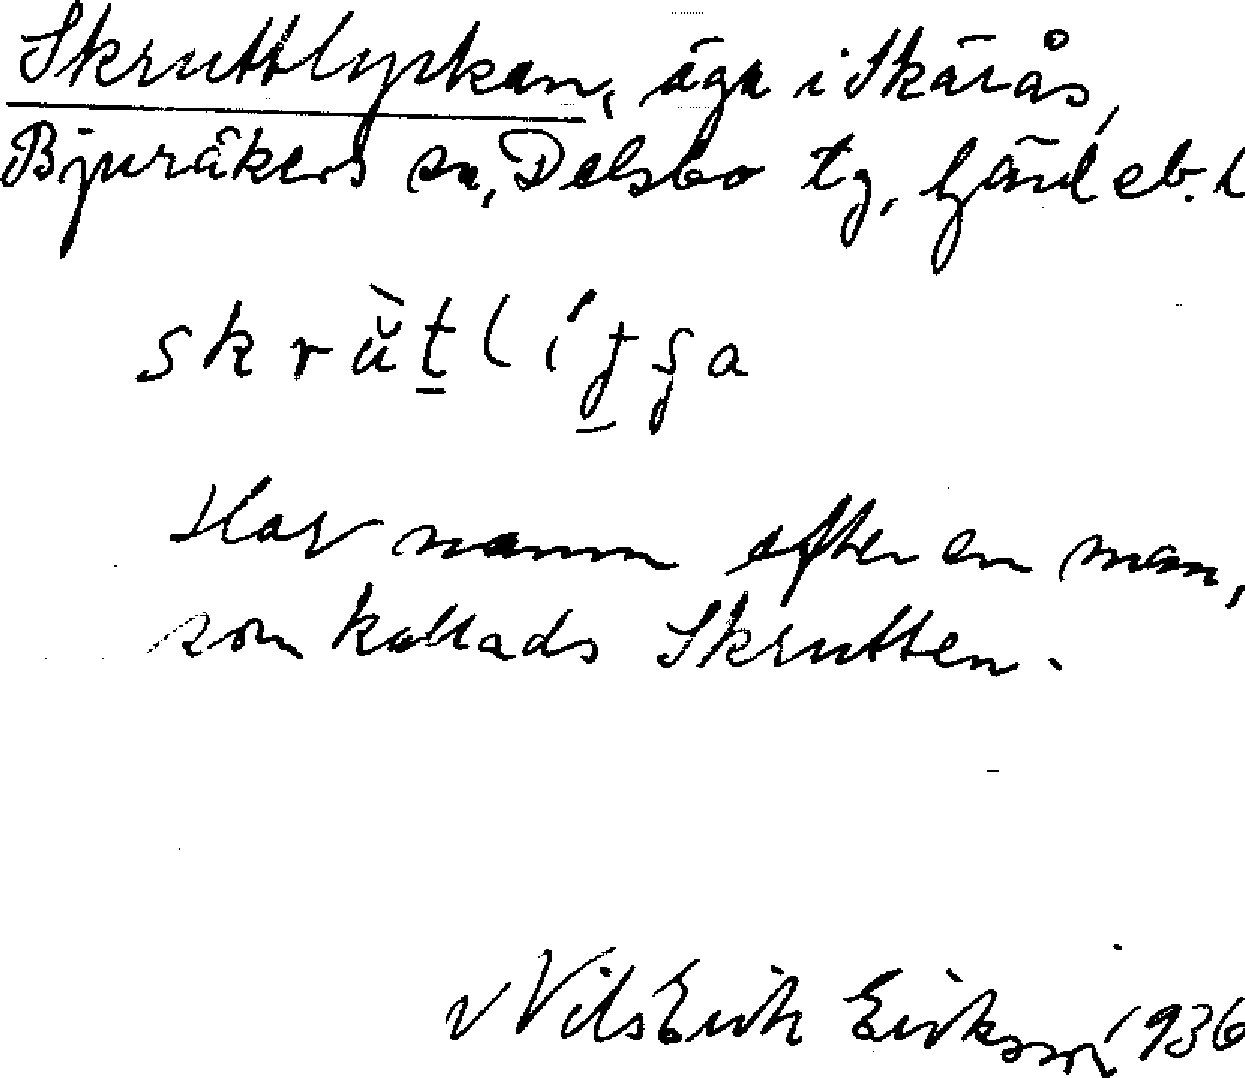 Skruttlyckan, äga i Skärås,
Bjuråkers sn, Delsbo tg, Gävleb. l
Har namn efter en man,
som kallads Skrutten.
Nils Erik Eriksson 1936